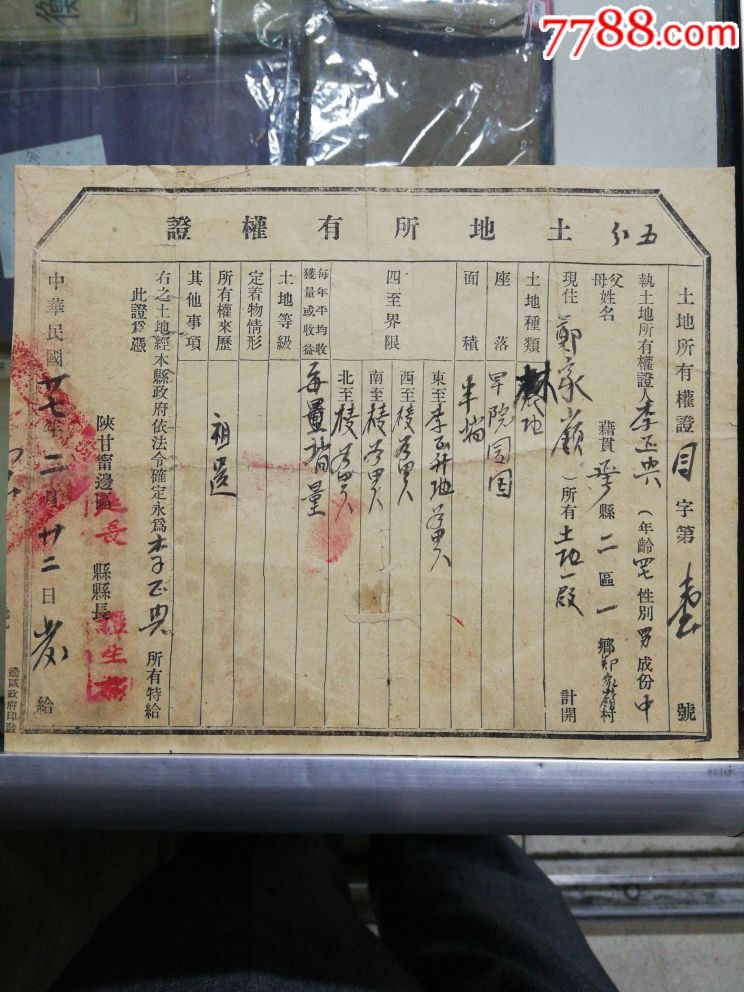 7788.com
土地所有權證
五分
土地所有權證 字第 壹 號
執土地所有權證人 李正典 (年齡 性別 男 成份 中
父母姓名 籍貫 縣 二 區 一 鄉 鄭家嶺村
現住 鄭家嶺 ) 所有 土地一段 計開
土地種類
座落
面積 半垧
四至界限
東至 李正升地為界
西至 棱為界
南至 棱為界
北至 棱為界
每年平均收獲量或收益 每量
土地等級
定着物情形
所有權來歷 祖遺
其他事項
右之土地經本縣政府依法令確定永為 李正典 所有特給
此證為憑
陝甘甯邊區 延長 縣縣長
中華民國 廿七年 二月 廿二日 發 給
邊區政府印發